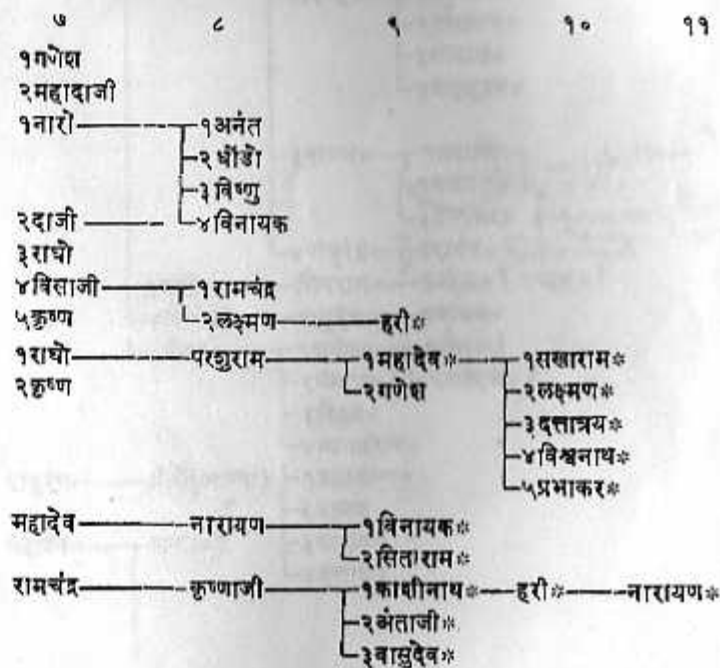 ७ ८ ९ १० ११
१गणेश
२महादाजी
१नारो १अनंत
२धोंडो
३विष्णु
२दाजी ४विनायक
३राघो
४विसाजी १रामचंद्र
५कृष्ण २लक्ष्मण हरी*
१राघो परशुराम १महादेव* १सखाराम*
२कृष्ण २गणेश २लक्ष्मण*
३दत्तात्रय*
४विश्वनाथ*
५प्रभाकर*
महादेव नारायण १विनायक*
२सिताराम*
रामचंद्र कृष्णाजी १काशीनाथ* हरी* नारायण*
२अंताजी*
३वासुदेव*